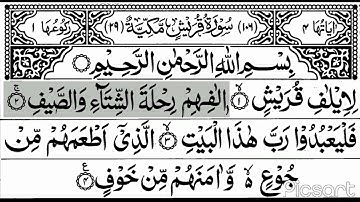 اٰيَاتُهَا ٤ (١٠٦) سُوْرَةُ قُرَيْشٍ مَكِّيَّةٌ (٢٩) رُكُوْعُهَا ١
بِسْمِ اللّٰهِ الرَّحْمٰنِ الرَّحِيْمِ
لِاِيْلٰفِ قُرَيْشٍ ۙ‏﴿۱﴾ اٖلٰفِهِمْ رِحْلَةَ الشِّتَآءِ وَالصَّيْفِ ۚ‏﴿۲﴾
فَلْيَعْبُدُوْا رَبَّ هٰذَا الْبَيْتِ ۙ‏﴿۳﴾ الَّذِيْٓ اَطْعَمَهُمْ مِّنْ
جُوْعٍ ۙ۬ وَّاٰمَنَهُمْ مِّنْ خَوْفٍ ‏﴿۴﴾
Picsart